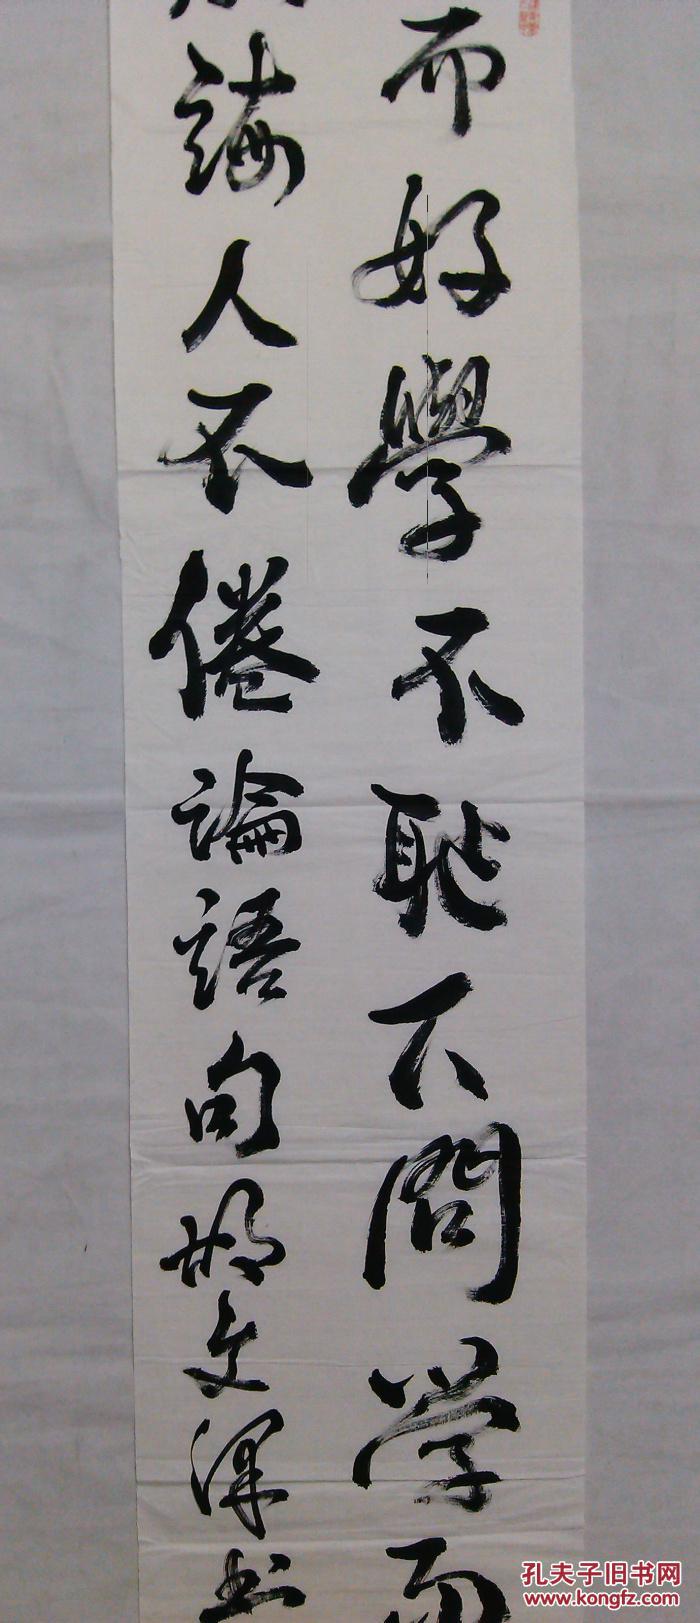 而好學不恥下問学而
誨人不倦論語句胡文渾书
孔夫子旧书网
www.kongfz.com